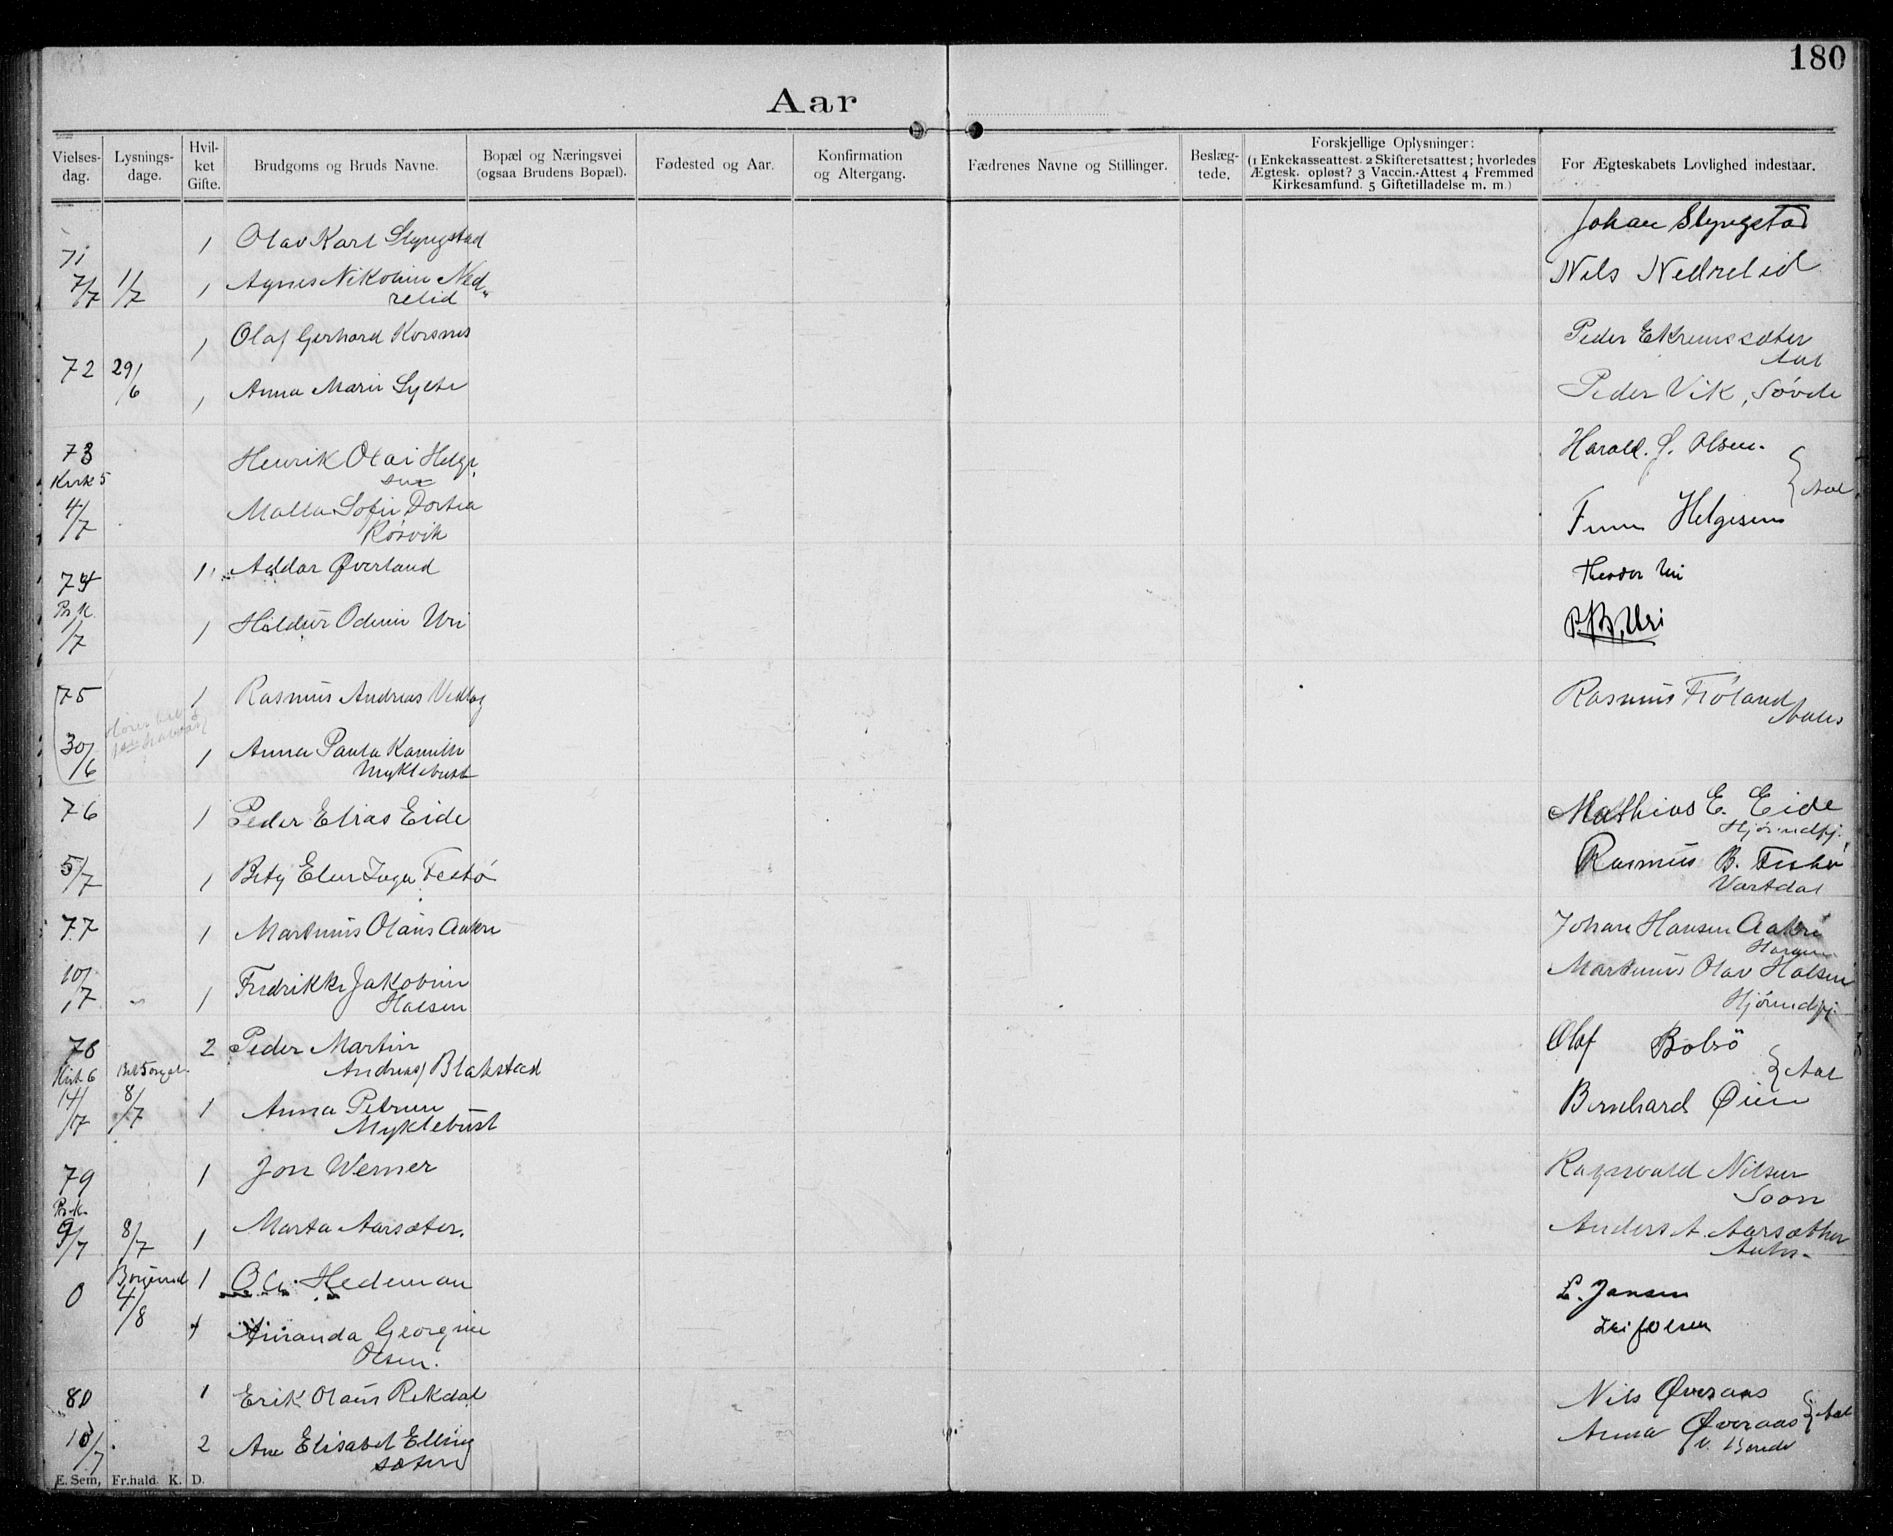 180
Aar
Vielses-dag. Lysnings-dage. Hvil-ket Gifte. Brudgoms og Bruds Navne. Bopæl og Næringsvei (ogsaa Brudens Bopæl). Fødested og Aar. Konfirmation og Altergang. Fædrenes Navne og Stillinger. Beslæg-tede. Forskjellige Oplysninger: (1 Enkekasseattest. 2 Skifteretsattest; hvorledes Ægtesk. opløst? 3 Vaccin.-Attest 4 Fremmed Kirkesamfund. 5 Giftetilladelse m. m.) For Ægteskabets Lovlighed indestaar.
71 1 Olav Karl Slyngstad Johan Slyngstad
7/7 1/7 1 Agnes Nikoline Ned- Nils Nedrelid
relid
1 Olaf Gerhard Korsnes Peder Ekremssæter
72 29/6 Aal
1 Anna Marie Sylte Peder Vik, Søvde
73 Henrik Olai Helge Harald. J. Olsen.
Kirk 5 sen Aal
4/7 Malla Sofie Dortea Finn Helgesen
Rørvik
74 1 Addar Øverland Theodor Uri
Br. K.
1/7 1 Hildur Odine Uri P. B. Uri
75 1 Rasmus Andreas Vedlog Rasmus Frøland
Aales
30/6 1 Anna Paula Kamille
Myklebust
76 1 Peder Elias Eide Mathias E. Eide
Hjørundfj.
5/7 1 Bety Elen Inga Festø Rasmus B. Festø
Vartdal
77 1 Martinus Olaus Aakre Johan Hansen Aakre
10/7 " 1 Fredrikke Jakobine Martinus Olav Halsen
Halsen Hjørundfj.
78 2 Peder Martin Olaf Bolsö
Kirk 6 Andreas Blakstad Aal
14/7 8/7 1 Anna Petrine Bernhard Øien
Myklebust
79 1 Jon Werner Ragnvald Nilsen
Br. K. Soon
9/7 8/7 1 Marta Aarsæter. Anders A. Aarsæther
Aales.
0 Borgerud 4/8 1 Ole Hedeman L. Jansen
1 Amanda Georgine Leif Olsen
Olsen.
80 1 Erik Olaus Rekdal Nils Øveraas
Aal
10/7 2 Ane Elisabet Elling Anna Øveraas
sæter
E. Sem, Fr.hald. K. D.